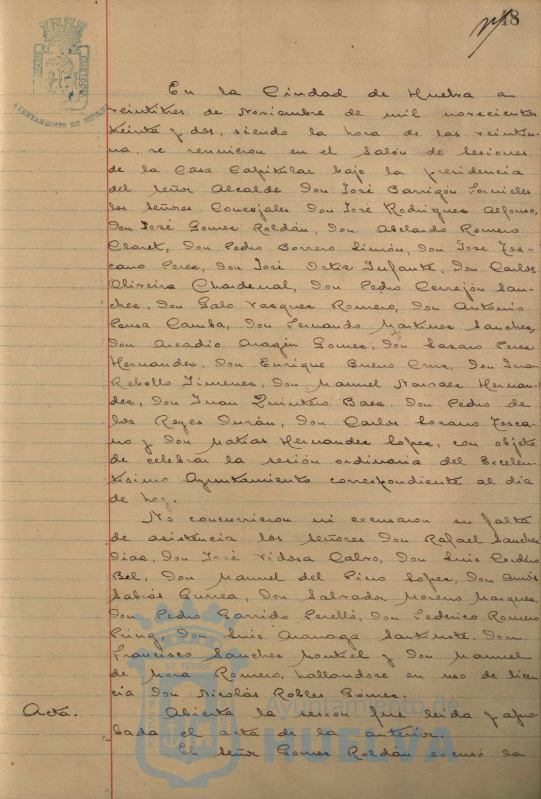 18
En la Ciudad de Huelva a
veintitres de Noviembre de mil novecientos
treinta y dos, siendo la hora de las veintiu-
na, se reunieron en el Salón de Sesiones
de la Casa Capitular bajo la presidencia
del señor Alcalde Don José Barrigón Fornieles
los señores Concejales Don José Rodriguez Alfonso,
Don José Gomez Roldán, Don Abelardo Romero
Claret, Don Pedro Borrero Limón, Don José Tos-
cano Perez, Don José Ortiz Infante, Don Carlos
Oliveira Chardenal, Don Pedro Cerrejón San-
chez, Don Galo Vazquez Romero, Don Antonio
Ponsa Camba, Don Fernando Martinez Sanchez,
Don Arcadio Aragón Gomez, Don Lazaro Perez
Hernandez, Don Enrique Bueno Cruz, Don Juan
Rebollo Jimenez, Don Manuel Narvaez Hernan-
dez, Don Juan Quintero Baez, Don Pedro de
los Reyes Durán, Don Carlos Lozano Tosca-
no y Don Matías Hernandez Lopez, con objeto
de celebrar la sesión ordinaria del Excelen-
tisimo Ayuntamiento correspondiente al dia
de hoy.
No concurrieron ni excusaron su falta
de asistencia los señores Don Rafael Sanchez
Diaz, Don José Vidosa Calvo, Don Luis Cordero
Bel, Don Manuel del Pino Lopez, Don Amós
Sabrás Gurrea, Don Salvador Moreno Marquez,
Don Pedro Garrido Perelló, Don Federico Romero
Don Luis Arauzo Don
Francisco Sanchez Montiel y Don Manuel
de Mora Romero, hallandose en uso de licen-
cia Don Nicolás Robles Gomez.
Acta. Abierta la sesión fue leida y apro-
bada el acta de la anterior.
El señor Gomez Roldán excusó la
Ayuntamiento de
HUELVA